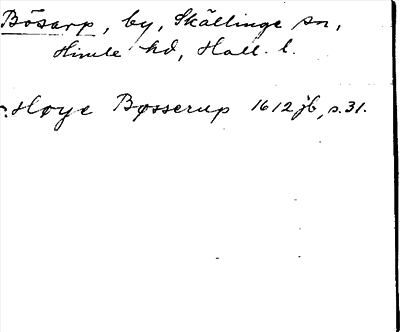 Bösarp, by, Skällinge sn,
Himle hd, Hall. l.
Høye Bøsserup 1612 jb, s. 31.